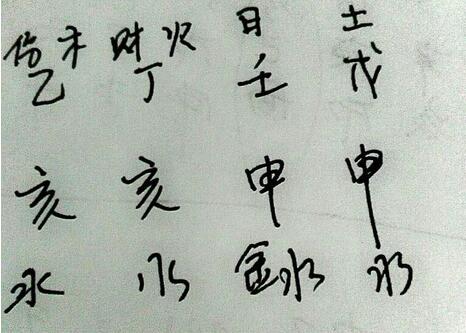 伤木 财火 日 土
乙 丁 壬 戊
亥 亥 申 申
水 水 金水 水